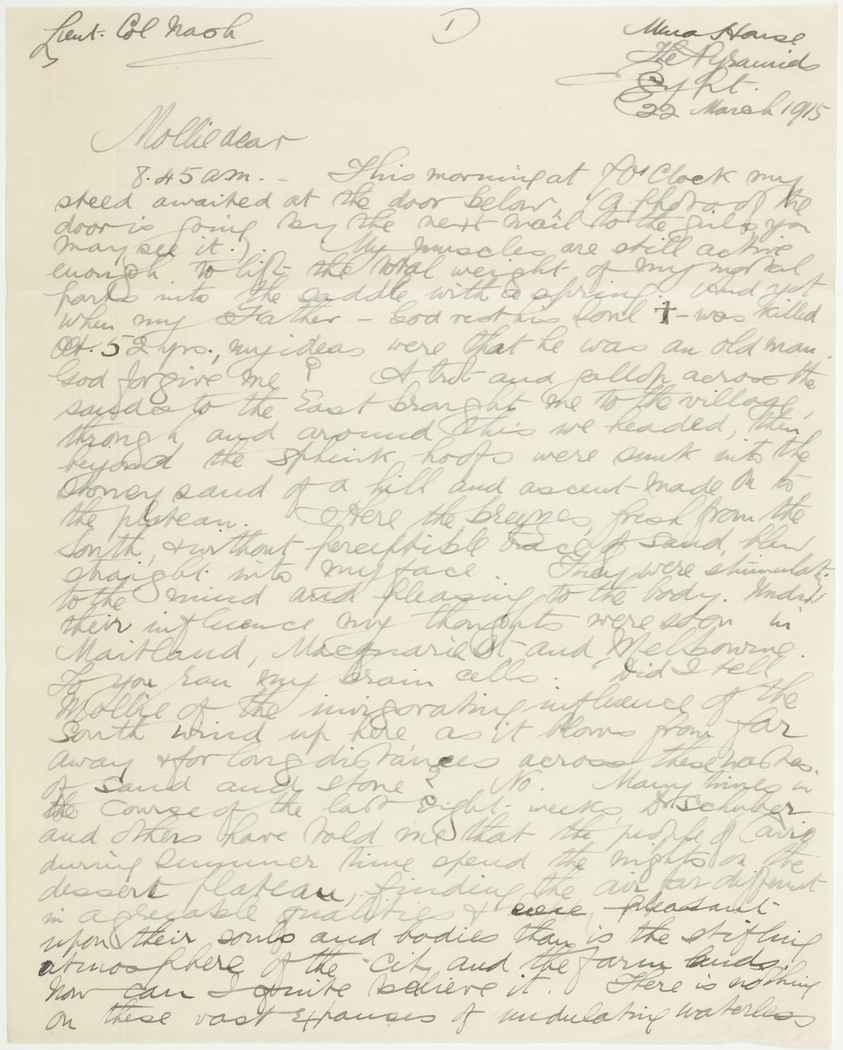 Lieut. Col Nash
1
Mena House
The Pyramids
Egypt.
22 March 1915
Mollie dear
8.45 am. - This morning at 7 O'Clock my
steed awaited at the door below, (a photo of the
door is going by the next mail to the girls, you
may see it.) My muscles are still active
enough to lift the total weight of my mortal
parts into the saddle with a spring. And yet
when my Father - God rest his soul † - was killed
at 52 yrs., my ideas were that he was an old man.
God forgive me! A trot and gallop across the
sands to the East brought me to the village,
through and around this we headed, then
beyond the Sphink, hoofs were sunk into the
stoney sand of a hill and ascent made on to
the plateau. Here the breezes, fresh from the
South, & without perceptible trace of sand, blew
straight into my face. They were stimulat.
to the mind and pleasing to the body. Under
their influence my thoughts were soon in
Maitland, Macquarie St and Melbourne.
To you ran my brain cells. "Did I tell
Mollie of the invigorating influence of the
South wind up here as it blows from far
away & for long distances across these wastes
of sand and stone? No. Many times in
the course of the last eight weeks, Dr Schuber
and others have told me that the people of Cairo
during summer time spend the nights on the
dessert plateau, finding the air far different
in agreeable qualities & pleasant
upon their souls and bodies than is the stifling
atmosphere of the city and the farm lands.
Now can I quite believe it. There is nothing
on these vast expanses of undulating waterless